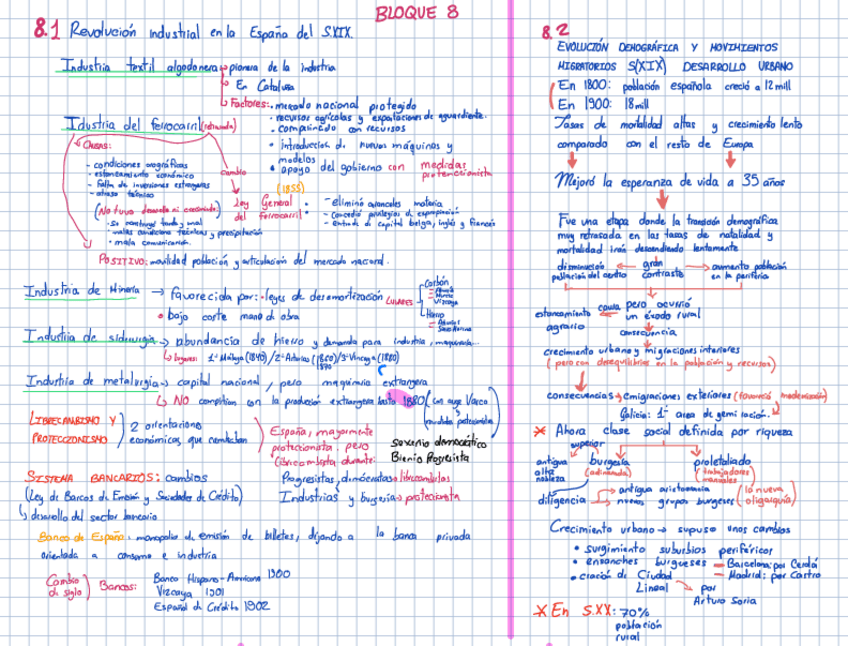 BLOQUE 8
8.1 Revolución industrial en la España del S.XIX.
Industria textil algodonera → pionera de la industria
→ En Cataluña
→ Factores: • mercado nacional protegido
• recursos agrícolas y expotaciones de aguardiente.
• compaginado con recursos
• introducción de nuevas máquinas y
modelos
• apoyo del gobierno con medidas
proteccionista
Idustria del ferrocarril (retrasada)
Causas:
- condiciones orográficas
- estancamiento económico
- falta de inversiones extrangeras
- atraso técnico
(No tuvo desarrollo ni crecimiento)
- se construyó tarde y mal
- malas condiciones técnicas y precipitación
- mala comunicación.
cambio
(1855)
Ley General
del ferrocarril:
- eliminó aranceles materia
- concedió privilegios de expropiación
- entrada de capital belga, inglés y francés
POSITIVO: movilidad población y articulación del mercado nacional.
Industria de Minería → favorecida por: • leyes de desamortización
• bajo coste mano de obra
LUGARES
Carbón
Vizcaya
Hierro
Industria de siderurgia → abundancia de hierro y demanda para industria, maquinaria..
→ lugares: 1º Málaga (1840) / 2º Asturias (1860) / 3º Vizcaya (1880)
Industria de metalurgia → capital nacional, pero maquinaria extrangera
→ NO competían con la produción extrangera hasta 1880 (con auge Vasco
y
medidas proteccionistas
LIBRECAMBISMO Y
PROTECCIONISMO
2 orientaciones
económicas que cambiaban
España, mayormente
proteccionista, pero
librecambista durante:
Sexenio democrático
Bienio Progresista
Progresistas, demócratas → librecambistas
Industrias y burgesía → proteccionista
SISTEMA BANCARIOS: cambios
(Ley de Barcos de Emisión y Sociedades de Crédito)
→ desarrollo del sector bancario
Banco de España: monopolio de emisión de billetes, dejando a la banca privada
orientada a consumo e industria
Cambio
de siglo
Bancos:
Banco Hispano-Americano 1900
Vizcaya 1901
Español de Crédito 1902
8.2
EVOLUCIÓN DEMOGRÁFICA Y MOVIMIENTOS
MIGRATORIOS S(XIX) DESARROLLO URBANO
En 1800: población española creció a 12 mill
En 1900: 18 mill
Tasas de mortalidad altas y crecimiento lento
comparado con el resto de Europa
Mejoró la esperanza de vida a 35 años
Fue una etapa donde la transición demográfica
muy retrasada en las tasas de natalidad y
mortalidad irán descendiendo lentamente
disminución ← gran → aumento población
población del centro contraste en la periferia
estancamiento causa pero ocurrió
agrario un éxodo rural
consecuencia
crecimiento urbano y migraciones interiores
(pero con desequilibrios en la población y recursos)
consecuencias → emigraciones exteriores (favoreció modernización)
Galicia: 1ª area de
× Ahora clase social definida por riqueza
superior
antigua
alta
nobleza
burgesía
(adinerada)
proletaliado
(trabajadores
manuales)
diligencia → antigua aristocracia
→ nuevos grupos burgeses
(la nueva
oligarquía)
Crecimiento urbano → supuso unos cambios
• surgimiento suburbios periféricos
• ensanches burgueses = Barcelona: por Cerdá
= Madrid: por Castro
• creación de Ciudad
Lineal → por
Arturo Soria
× En S.XX: 70%
población
rural